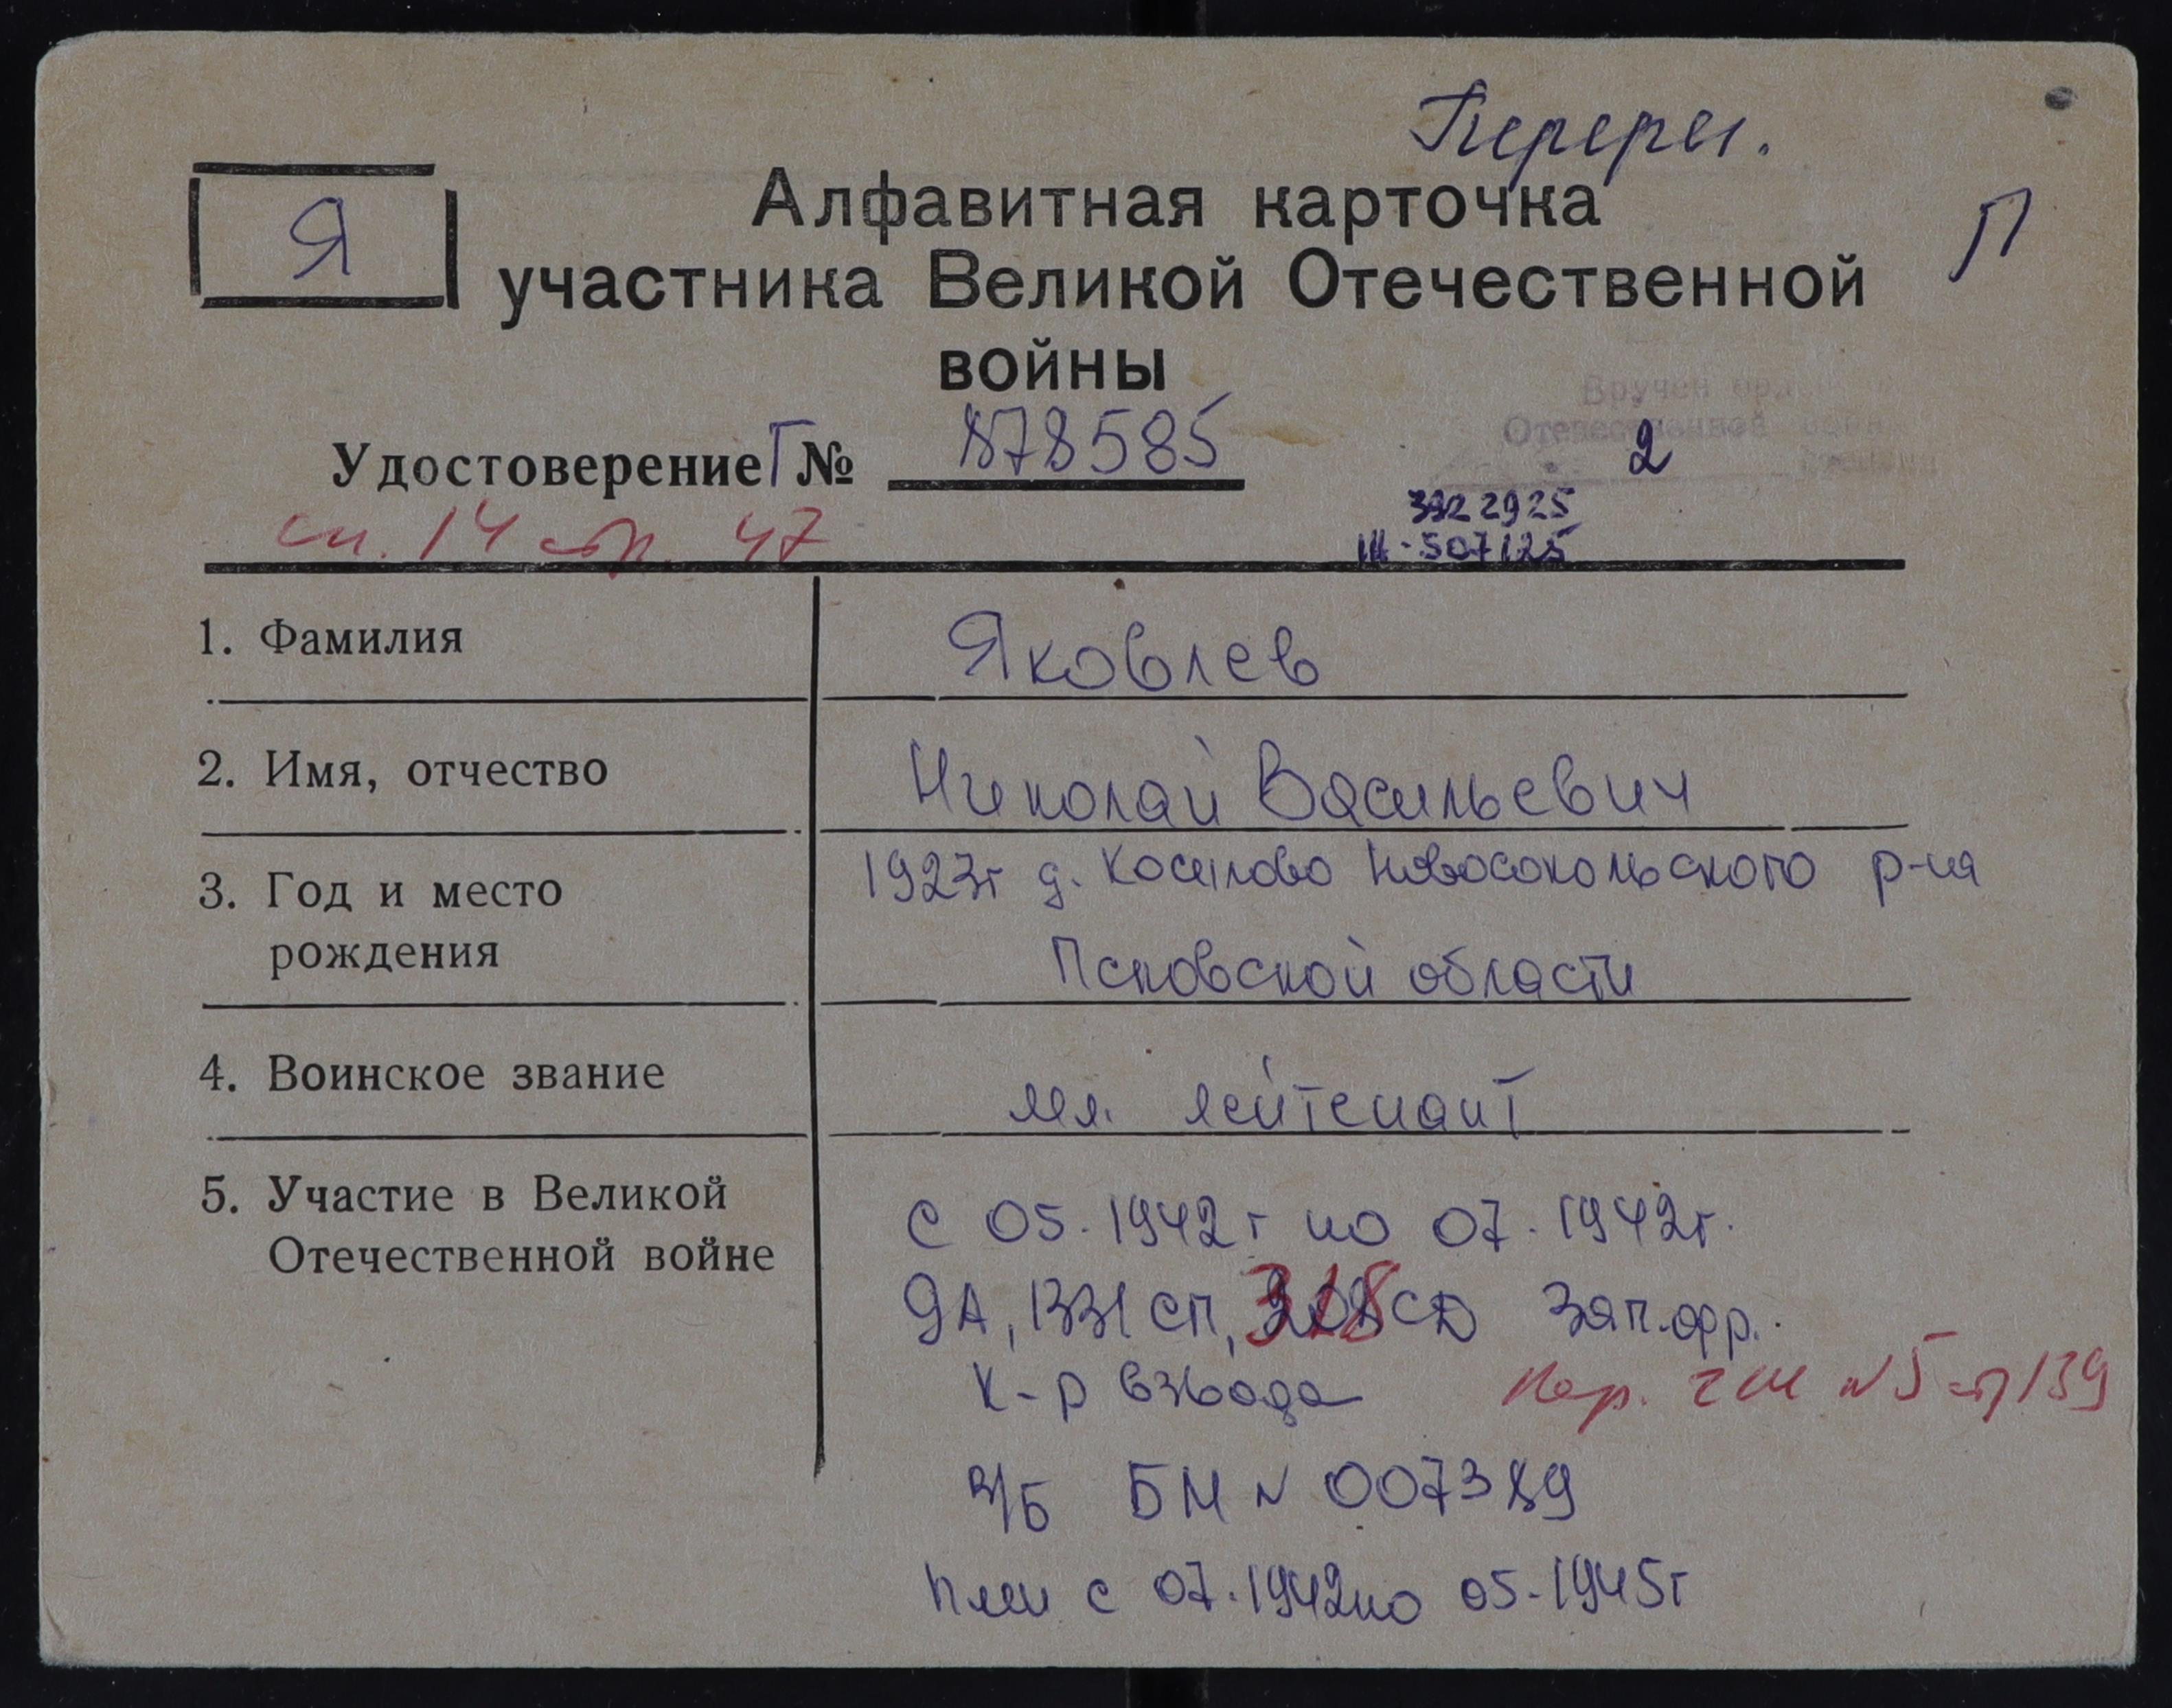 Перерег.
Я
Алфавитная карточка
П
участника Великой Отечественной
войны
Вручен орд
Отечественной войн
2
Удостоверение Г № 878585
3922925
сп. 14 стр. 47
III-507125
1. Фамилия
Яковлев
2. Имя, отчество
Николай Васильевич
3. Год и место
рождения
1923г д. Новосокольского р-на
Псковской области
4. Воинское звание
мл. лейтенант
5. Участие в Великой
Отечественной войне
С 05.1942г по 07.1942г.
9А, 1331 сп, 318 СД Зап.фр.
К-р взвода
ГШ N5 стр 139
в/б БМ N 007389
плен с 07.1942 по 05-1945г